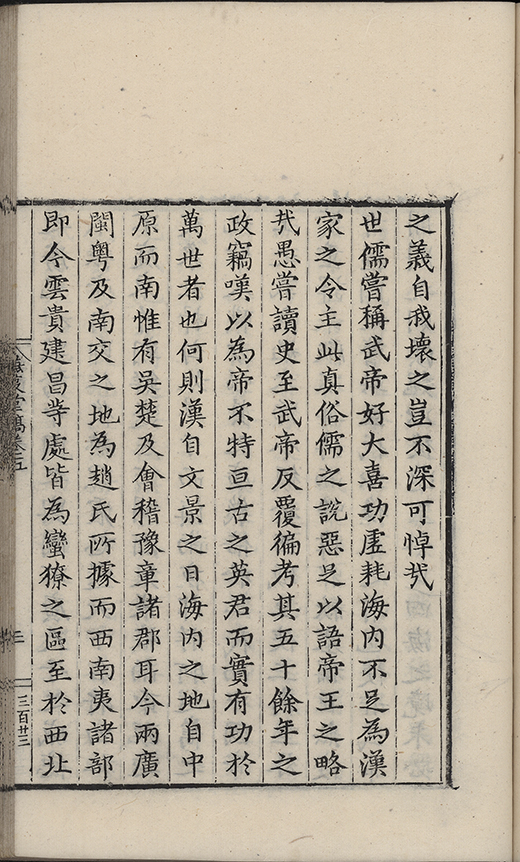 之義自我壞之豈不深可悼㢤
世儒嘗稱武帝好大喜功虛耗海內不足為漢
家之令主此真俗儒之說惡足以語帝王之略
㢤愚嘗讀史至武帝反覆徧考其五十餘年之
政竊嘆以為帝不特亘古之英君而實有功於
萬世者也何則漢自文景之日海內之地自中
原而南惟有吳楚及會稽豫章諸郡耳今兩廣
閩粤及南交之地為趙氏所據而西南夷諸部
即今雲貴建昌等處皆為蠻獠之區至於西北
三百廿三